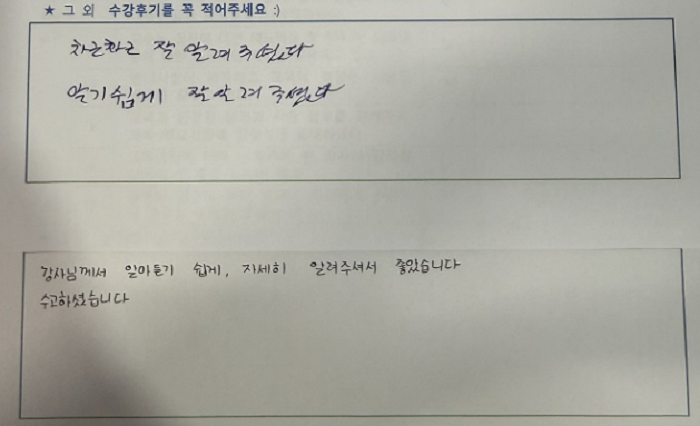 ★ 그 외 수강후기를 꼭 적어주세요 :)
차근차근 잘 알려주셨다
알기쉽게 잘알려주셨다
강사님께서 알아듣기 쉽게, 자세히 알려주셔서 좋았습니다
수고하셨습니다